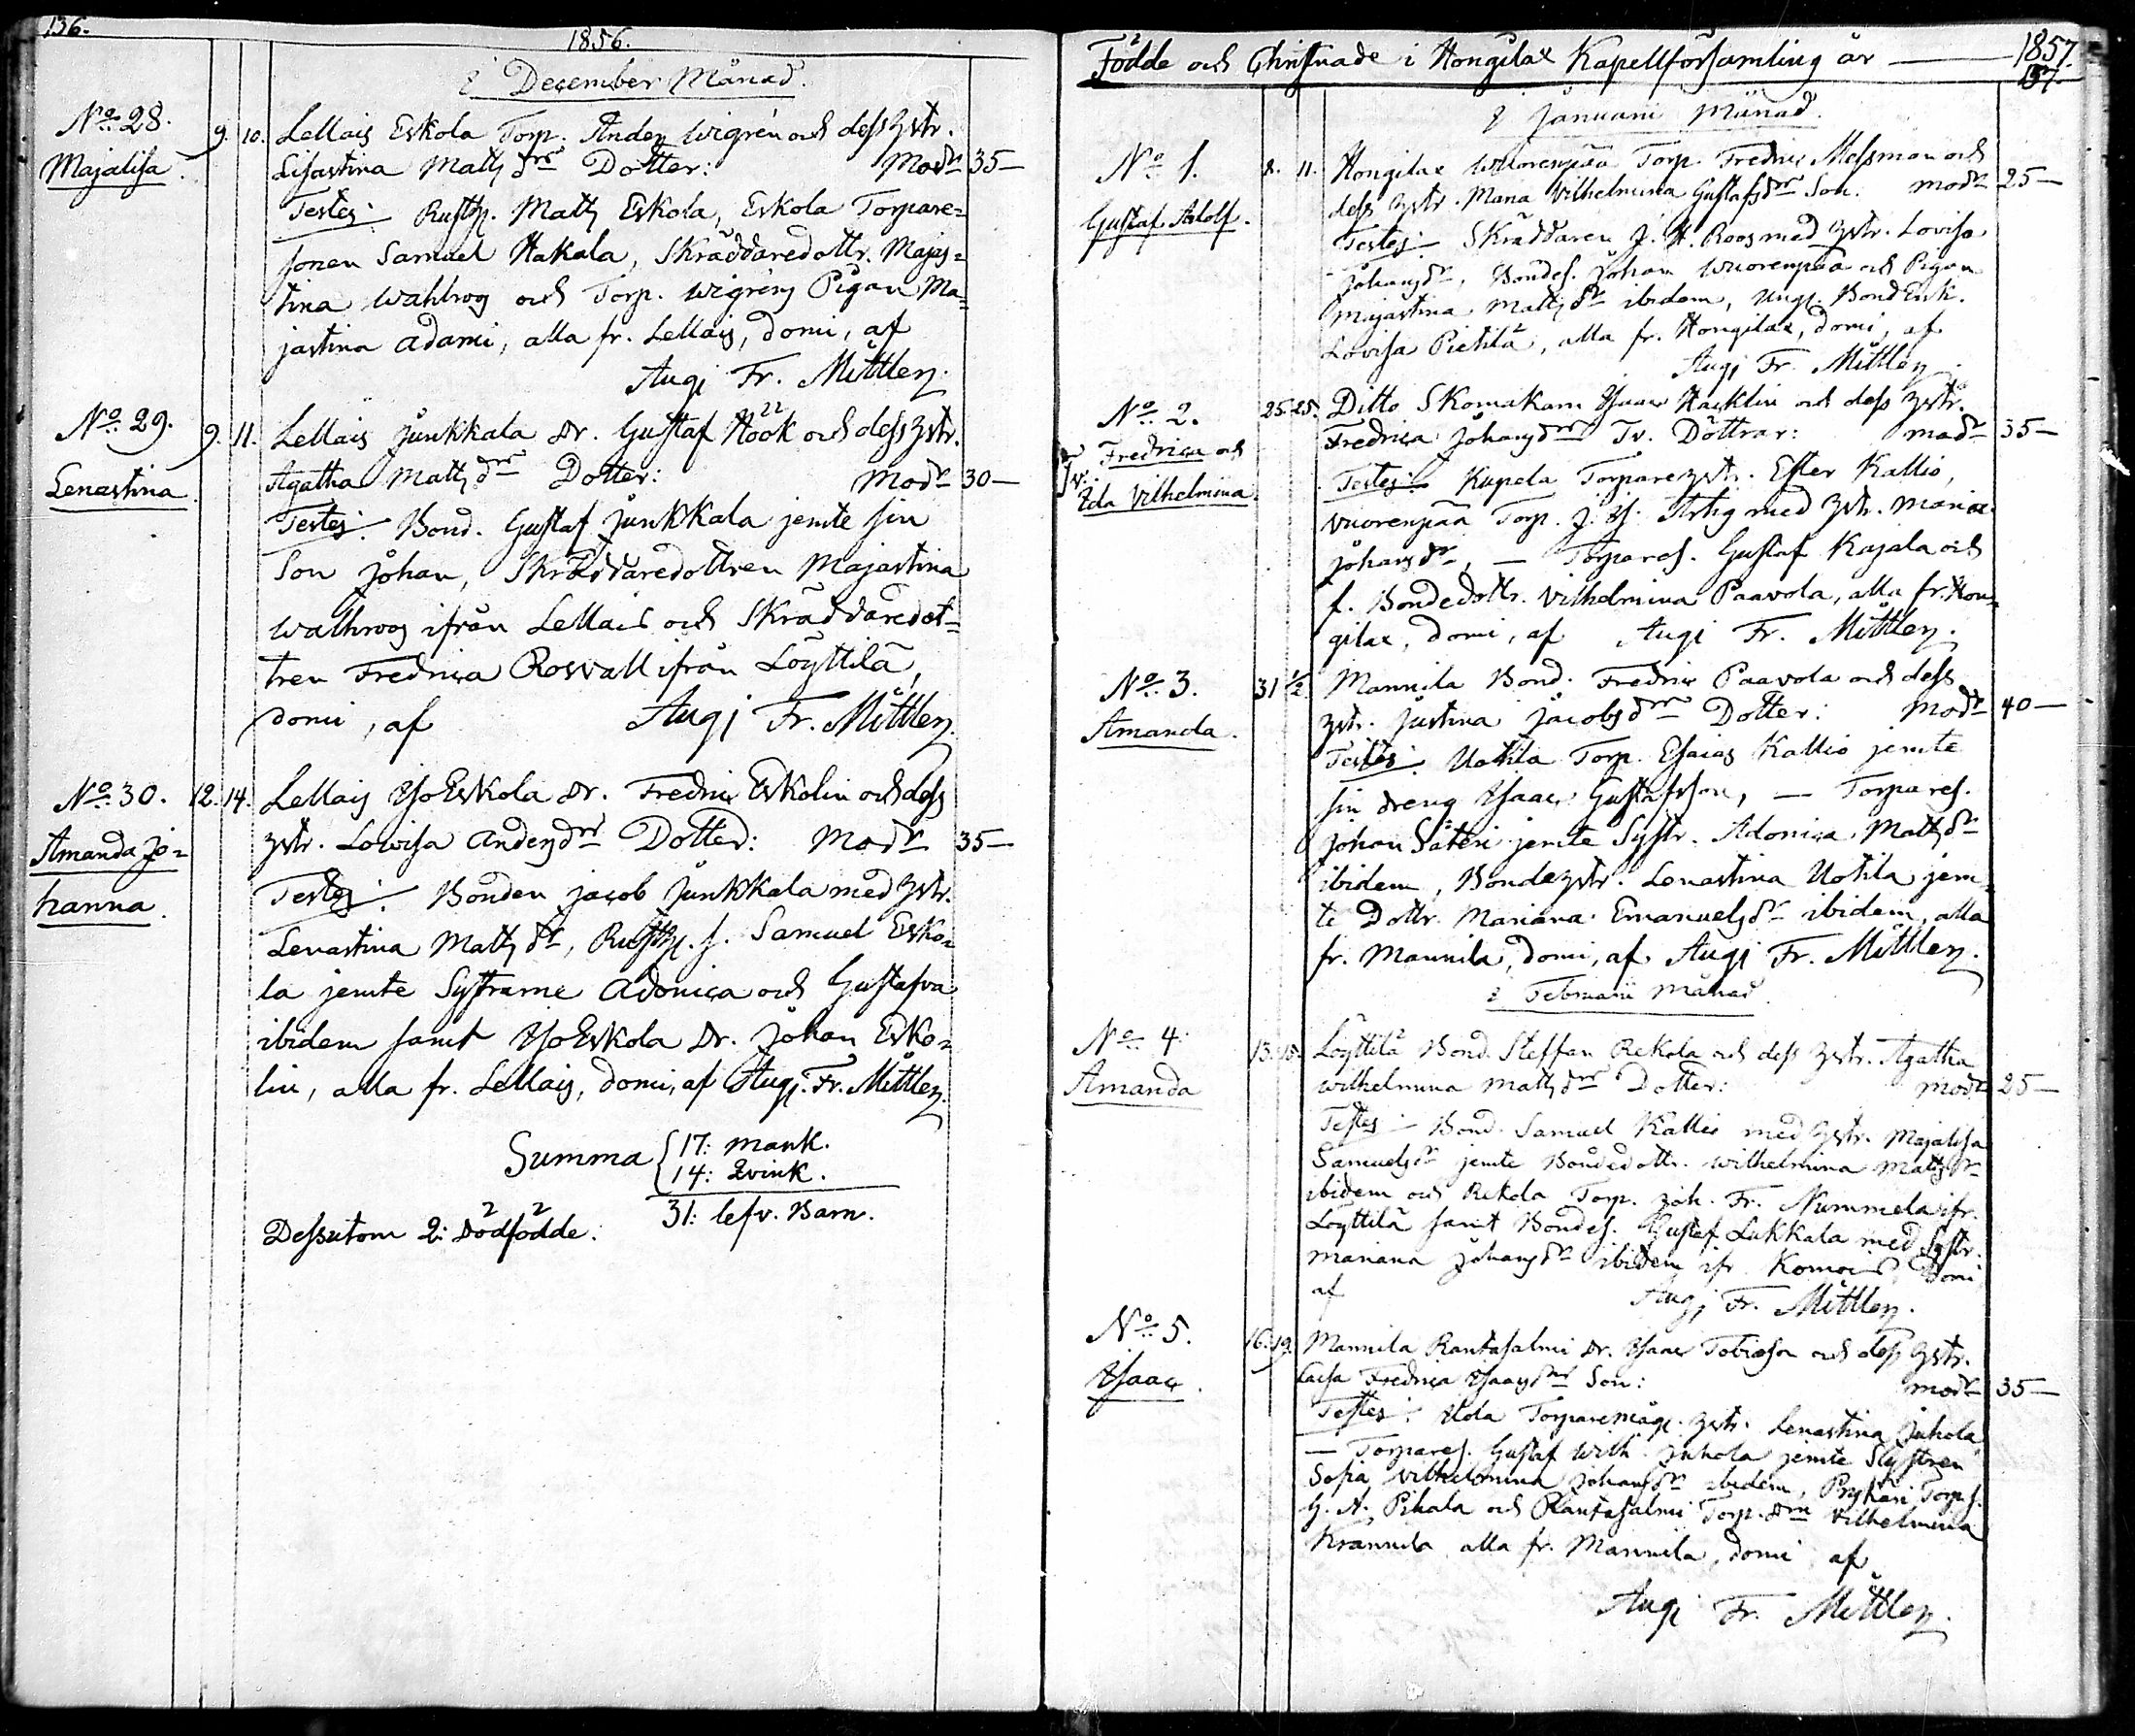 136.
1856.
i December Månad.
No 28. 9. 10. Lellais Eskola Torp. Anders Wigrén och dess hstr.
Majalisa. Lisastina Matts dr Dotter: Modr 35—
Testes: Rusth. Matts Eskola, Eskola Torpare=
sonen Samuel Hakala, Skräddaredottr. Majas=
tina Wahlroos och Torp. Wigréns Pigan Ma=
jastina Adami, alla fr. Lellais, domi, af
Aug: Fr. Mittler.
No 29. 9. 11. Lellais Junkkala Dr. Gustaf Höök och dess hstr.
Lenastina. Agatha Matts dr Dotter: Modr 30—
Testes: Bond. Gustaf Junkkala jemte sin
Son Johan, Skräddaredottren Majastina
Walhroos ifrån Lellais och Skräddaredot=
tren Fredrica Rosvall ifrån Löyttilä,
domi, af Aug: Fr. Mittler.
No 30. 12. 14. Lellais YsoEskola Dr. Fredric Eskolin och dess
Amanda Jo= hstr. Lovisa Andersdr Dotter: Modr 35—
hanna. Testes: Bonden Jacob Junkkala med hstr.
Lenastina Matts dr, Rusth. s. Samuel Esko=
la jemte Systrarne Adonica och Gustafva
ibidem samt YsoEskola Dr. Johan Esko=
lin, alla fr. Lellais, domi, af Aug: Fr. Mittler.
Summa 17: Mank.
14: Qvink.
31: lefv. Barn.
Dessutom 2: Dödfödde.
Födde och Christnade i Hongilax Kapellförsamling år — 1857.
137.
i Januarii Månad.
No 1. 8. 11. Hongilax Wuorenpää Torp. Fredric Messman och
Gustaf Adolf. dess hstr. Maria Vilhelmina Gustafsdr Son. Modr 25—
Testes: Skräddaren J. H. Roos med hstr. Lovisa
Johansdr, Bondes. Johan Wuorenpää och Pigan
Majastina Matts dr ibidem, Ungf. BondEnk.
Lovisa Pietilä, alla fr. Hongilax, domi, af
Aug: Fr. Mittler.
No 2. 25. 25. Ditto Skomakarn Ysaac Hacklin och dess hstr.
Fredrica och Fredrica Johansdr Tv. Döttrar: Modr 35—
Tv: Ida Vilhelmina Testes: Kupela Torparehstr. Ester Kallio,
Vuorenpää Torp. J. Hj. Artig med hstr. Maria
Johansdr, — Torpares. Gustaf Kajala och
f. Bondedottr. Vilhelmina Paavola, alla fr. Hon=
gilax, domi, af Aug: Fr. Mittler.
No 3. 31 1/2 Mannila Bond. Fredric Paavola och dess
Amanda. hstr. Justina Jacobsdr Dotter: Modr 40—
Testes: Uotila Torp. Esaias Kallio jemte
sin dreng Ysaac Gustafsson, — Torpares.
Johan Säteri jemte Systr. Adonica Matts dr
ibidem, Bondehstr. Lenastina Uotila jem=
te Dottr. Mariana Emanuelsdr ibidem, alla
fr. Mannila, domi, af Aug: Fr. Mittler.
i Februarii Månad.
No 4. 13. 15. Löyttilä Bond. Steffan Rekola och dess hstr. Agatha
Amanda Wilhelmina Matts dr Dotter: Modr 25—
Testes: Bond. Samuel Kallio med hstr. Majalisa
Samuelsdr jemte Bondedottr. Wilhelmina Matts dr
ibidem och Rekola Torp. Joh. Fr. Nummela ifr.
Löyttilä samt Bondes. Gustaf Lukkala med Systr.
Mariana Johansdr ibidem ifr. domi
af Aug: Fr. Mittler.
No 5. 16. 19. Mannila Rantasalmi Dr. Ysaac Tobiasson och dess hstr.
Ysaac. Caisa Fredrica Ysaacsdr Son: Modr 35—
Testes: Torparemåg. hstr. Lenastina Juhola
— Torpares. Gustaf Wilh. Juhola jemte Systren
Sofia Vilhelmina Johansdr ibidem, Torp. s.
G. A. Pihala och Rantasalmi Torp. dr Vilhelmina
Krannila alla fr. Mannila, domi, af
Aug: Fr. Mittler.